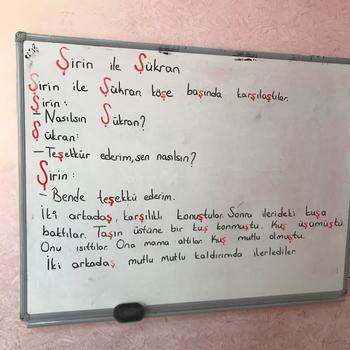 Şirin ile Şükran
Şirin ile Şükran köşe başında karşılaştılar.
Şirin:
- Nasılsın Şükran?
Şükran:
- Teşekkür ederim, sen nasılsın?
Şirin:
- Bende teşekkü ederim.
İki arkadaş, karşılıklı konuştular. Sonra ilerideki kuşa
baktılar. Taşın üstüne bir kuş konmuştu. Kuş üşümüştü.
Onu ısıttılar. Ona mama attılar. Kuş mutlu olmuştu.
İki arkadaş mutlu mutlu kaldırımda ilerlediler.